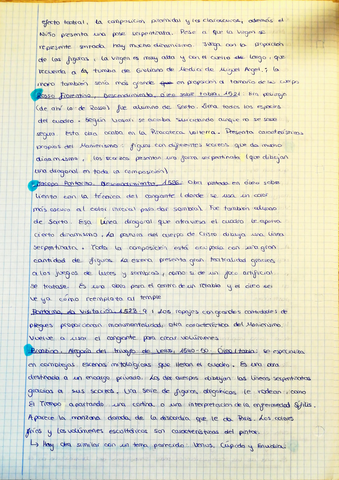 efecto teatral, la composición piramidal y los claroscuros, además el
Niño presenta una pose serpentinata. Pese a que la Virgen se
represente sentada, hay mucho dinamismo. Juega con la proporción
de las figuras, la Virgen es muy alta y con el cuello de largo, que
recuerda a la tumba de Giuliano de Medici de Miguel Ángel; la
mano también será más grande en proporción al tamaño de su cuerpo
Rosso Fiorentino, Descendimiento, óleo sobre tabla, 1521. Era pelirrojo
(de ahí lo de Rosso) fue alumno de Sarto. Llena todos los espacios
del cuadro. Según Vasari se acaba suicidando aunque no se sabe
seguro. Esta obra acaba en la Pinacoteca Volterra. Presenta características
propias del Manierismo: figura con diferentes escorzos que da mucho
dinamismo, los escorzos presentan una forma serpentinata (que dibujan
una diagonal en toda la composición).
Jacopo Pontormo, Descendimiento, 1526. Obra pintada en óleo sobre
lienzo con la técnica del cangiante (donde se usa un color
más cálido al color inicial para dar sombra). Fue también alumno
de Sarto. Esa línea diagonal que atraviesa el cuadro le aporta
cierto dinamismo. La postura del cuerpo de Cristo dibuja una línea
serpentinata. Toda la composición está ocupada con una gran
cantidad de figuras. La escena presenta gran teatralidad gracias
a los juegos de luces y sombras, como si de un foco artificial
se tratase. Es una obra para el centro de un retablo y el cielo se
ve ya como reemplaza al templo
Pontormo, La Visitación, 1528-9. Los ropajes con grandes cantidades de
pliegues proporcionan monumentalidad, otra característica del Manierismo.
Vuelve a usar el cangiante para crear volúmenes.
Bronzino, Alegoría del triunfo de Venus, 1540-50. Se especializa
en complejas escenas mitológicas que llenan el cuadro. Es una obra
destinada a un encargo privado. Los dos cuerpos dibujan las líneas serpentinatas
gracias a sus escorzos. Una serie de figuras alegóricas le rodean, como
El Tiempo apartando una cortina, o una interpretación de la enfermedad Sífilis.
Aparece la manzana dorada de la discordia que le da Paris. Los colores
fríos y los volúmenes escultóricos son característicos del pintor.
↳ Hay otra similar con un tema parecido: Venus, Cupido y Envidia.